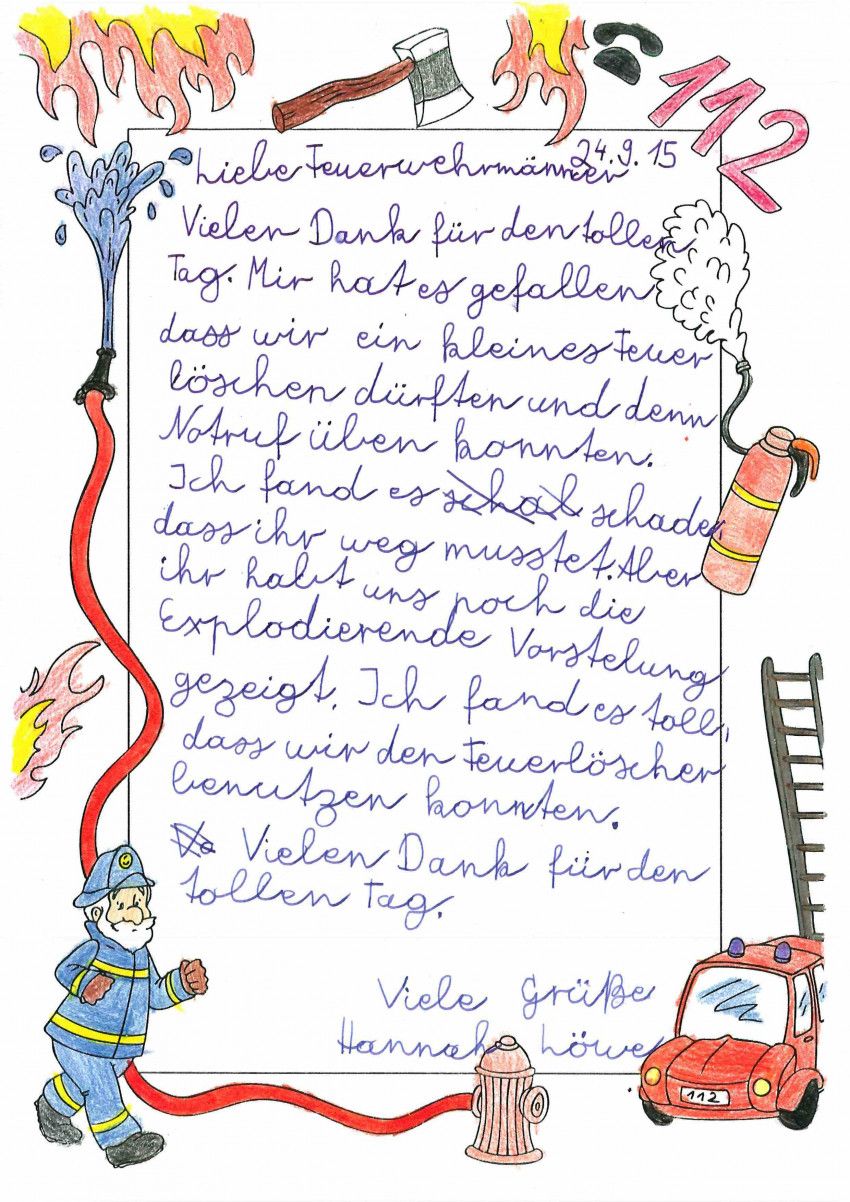 112
24.9.15
Liebe Feuerwehrmänner
Vielen Dank für den tollen
Tag. Mir hat es gefallen
dass wir ein kleines Feuer
löschen dürften und denn
Notruf üben konnten.
Ich fand es schal schade,
dass ihr weg musstet. Aber
ihr habt uns noch die
Explodierende Vorstelung
gezeigt. Ich fand es toll,
dass wir den Feuerlöscher
benutzen konnten.
Vielen Dank für den
tollen Tag.
Viele Grüße
Hannah Löwe
112